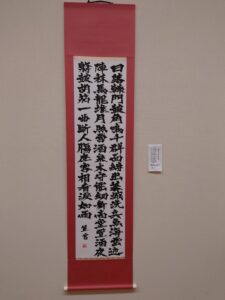 日落轅門鼓角鳴千群面縛出蕃城洗兵魚海雲迎
陣秣馬龍堆月照營酒泉太守能劍舞高堂置酒夜
擊鼓胡笳一曲斷人腸座客相看淚如雨